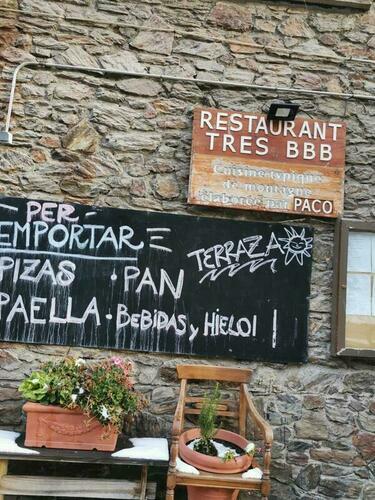 RESTAURANT
TRES BBB
Cuisine typique
de montagne
élaborée par PACO
- PER -
EMPORTAR =
TERRAZA
PIZAS · PAN
PAELLA · BEBIDAS y HIELO!